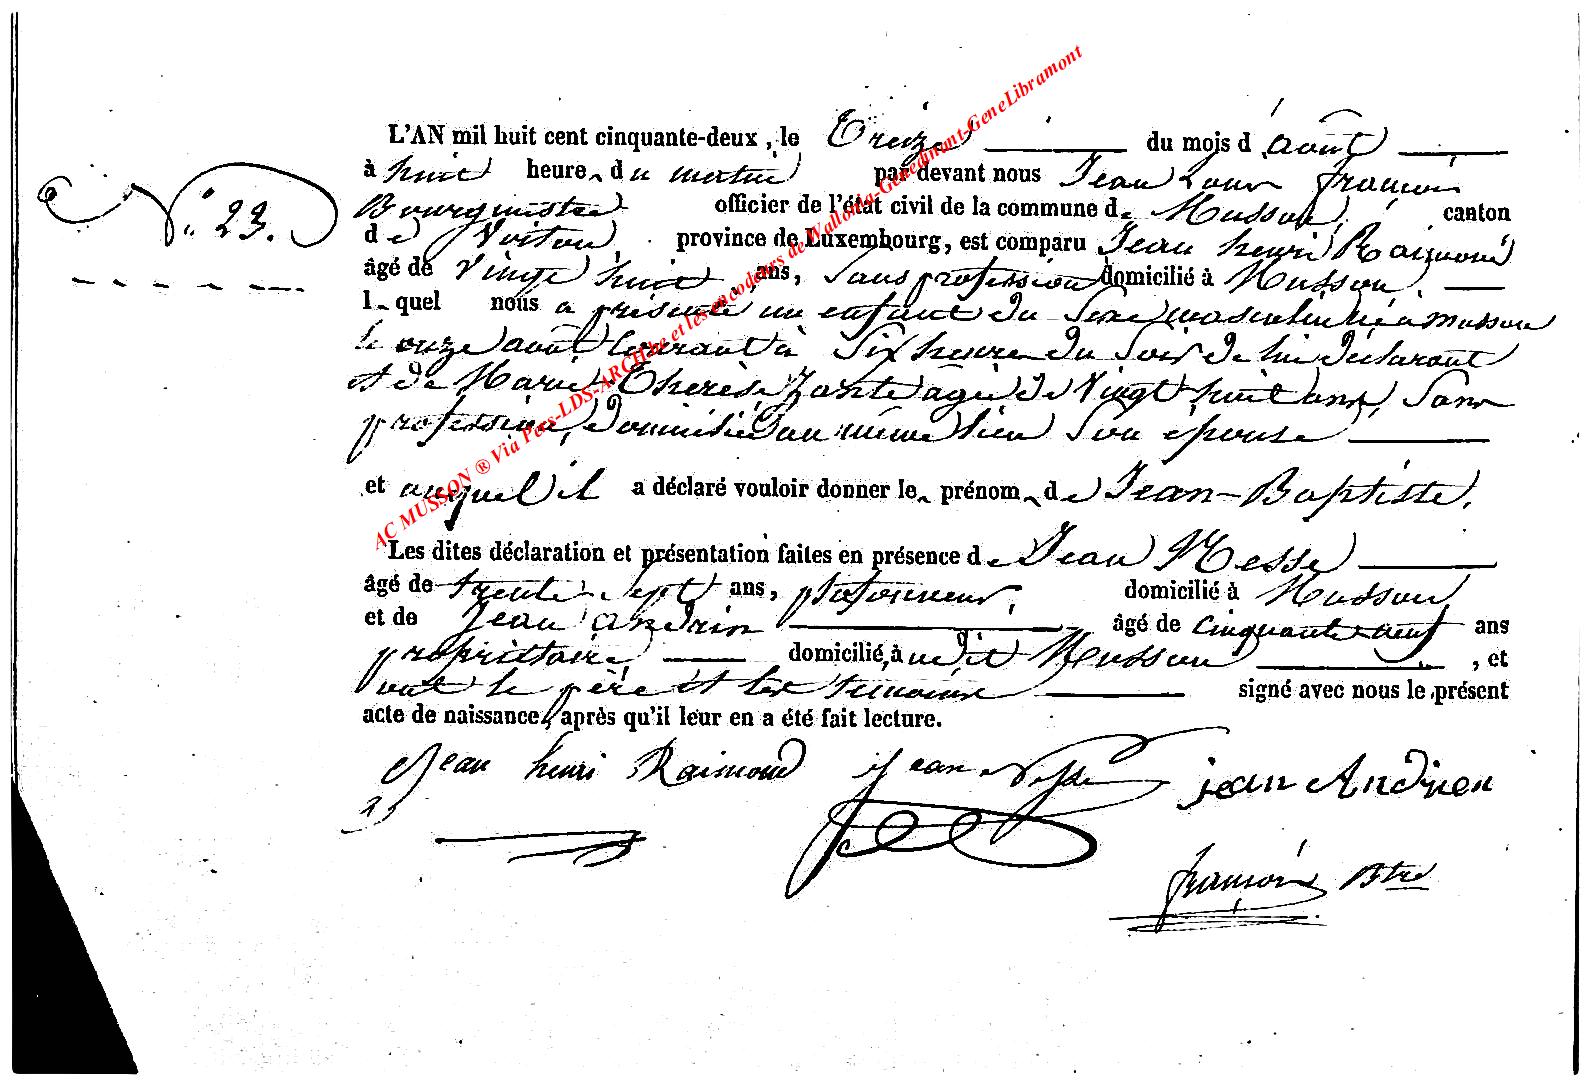 L'AN mil huit cent cinquante-deux, le Treize du mois d'août
à huit heures du matin par devant nous Jean Louis françois
N.° 23.
Bourgmestre officier de l'état civil de la commune de Musson, canton
de Virton, province de Luxembourg, est comparu Jean henri Raimond
âgé de Vingt huit ans, Sans profession domicilié à Musson,
lequel nous a présenté un enfant du Sexe masculin né à Musson
le onze août Courant à Six heures du Soir de lui déclarant
et de Marie Therèse Zante agée de Vingt huit ans, Sans
profession, domiciliée au même lieu Son épouse
et auquel il a déclaré vouloir donner le prénom de Jean-Baptiste.
Les dites déclaration et présentation faites en présence de Jean Nesse
âgé de trente sept ans, plafonneur, domicilié à Musson
et de Jean andrin âgé de cinquante neuf ans
propriétaire, domicilié, audit Musson, et
ont le père et les témoins signé avec nous le présent
acte de naissance, après qu'il leur en a été fait lecture.
Jean henri Raimond jean Nesse jean Andrien
françois Btre
AC MUSSON ® Via Pers-LDS-ARCH.be et les encodeurs de Wallonia-Genedinant-GeneLibramont